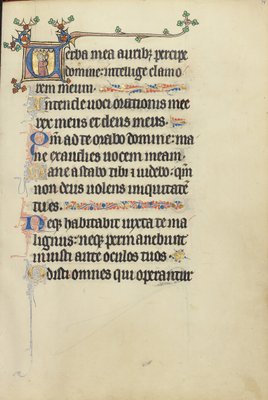 Verba mea auribȝ percipe
domine: intellige clamo
rem meum.
Intende voci orationis mee
rex meus et deus meus.
Qm̄ ad te orabo domine: ma
ne exaudies vocem meam.
Mane astabo tibi ⁊ videbo: qm̄
non deus volens iniquitatē
tu es.
Neqȝ habitabit iuxta te ma
lignus: neqȝ permanebunt
iniusti ante oculos tuos.
Odisti omnes qui operantur